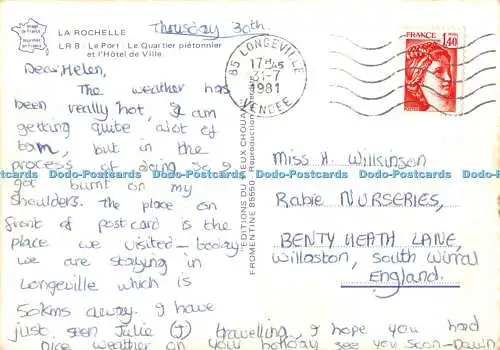 Image de France
imprimé en France
LA ROCHELLE
LR 8 - Le Port - Le Quartier piétonnier
et l'Hôtel de Ville.
Thursday 30th.
Dear Helen,
The weather has
been really hot, I am
getting quite alot of
tan, but in the
process of doing so I
got burnt on my
shoulders. The place on
front of postcard is the
place we visited today
we are staying in
Longeville which is
50kms away. I have
just seen Julie (J) travelling, I hope you had
nice weather on your holiday see you soon - Dawn
EDITIONS DU VIEUX CHOUAN
FROMENTINE 85550 - Reproduction
85 LONGEVILLE
17H45
31-7
1981
VENDEE
FRANCE
1,40
Miss H. Wilkinson
Rabie NURSERIES,
BENTY HEATH LANE,
Willaston, South Wirral
England.
Dodo-Postcards Dodo-Postcards Dodo-Postcards Dodo-Postcards